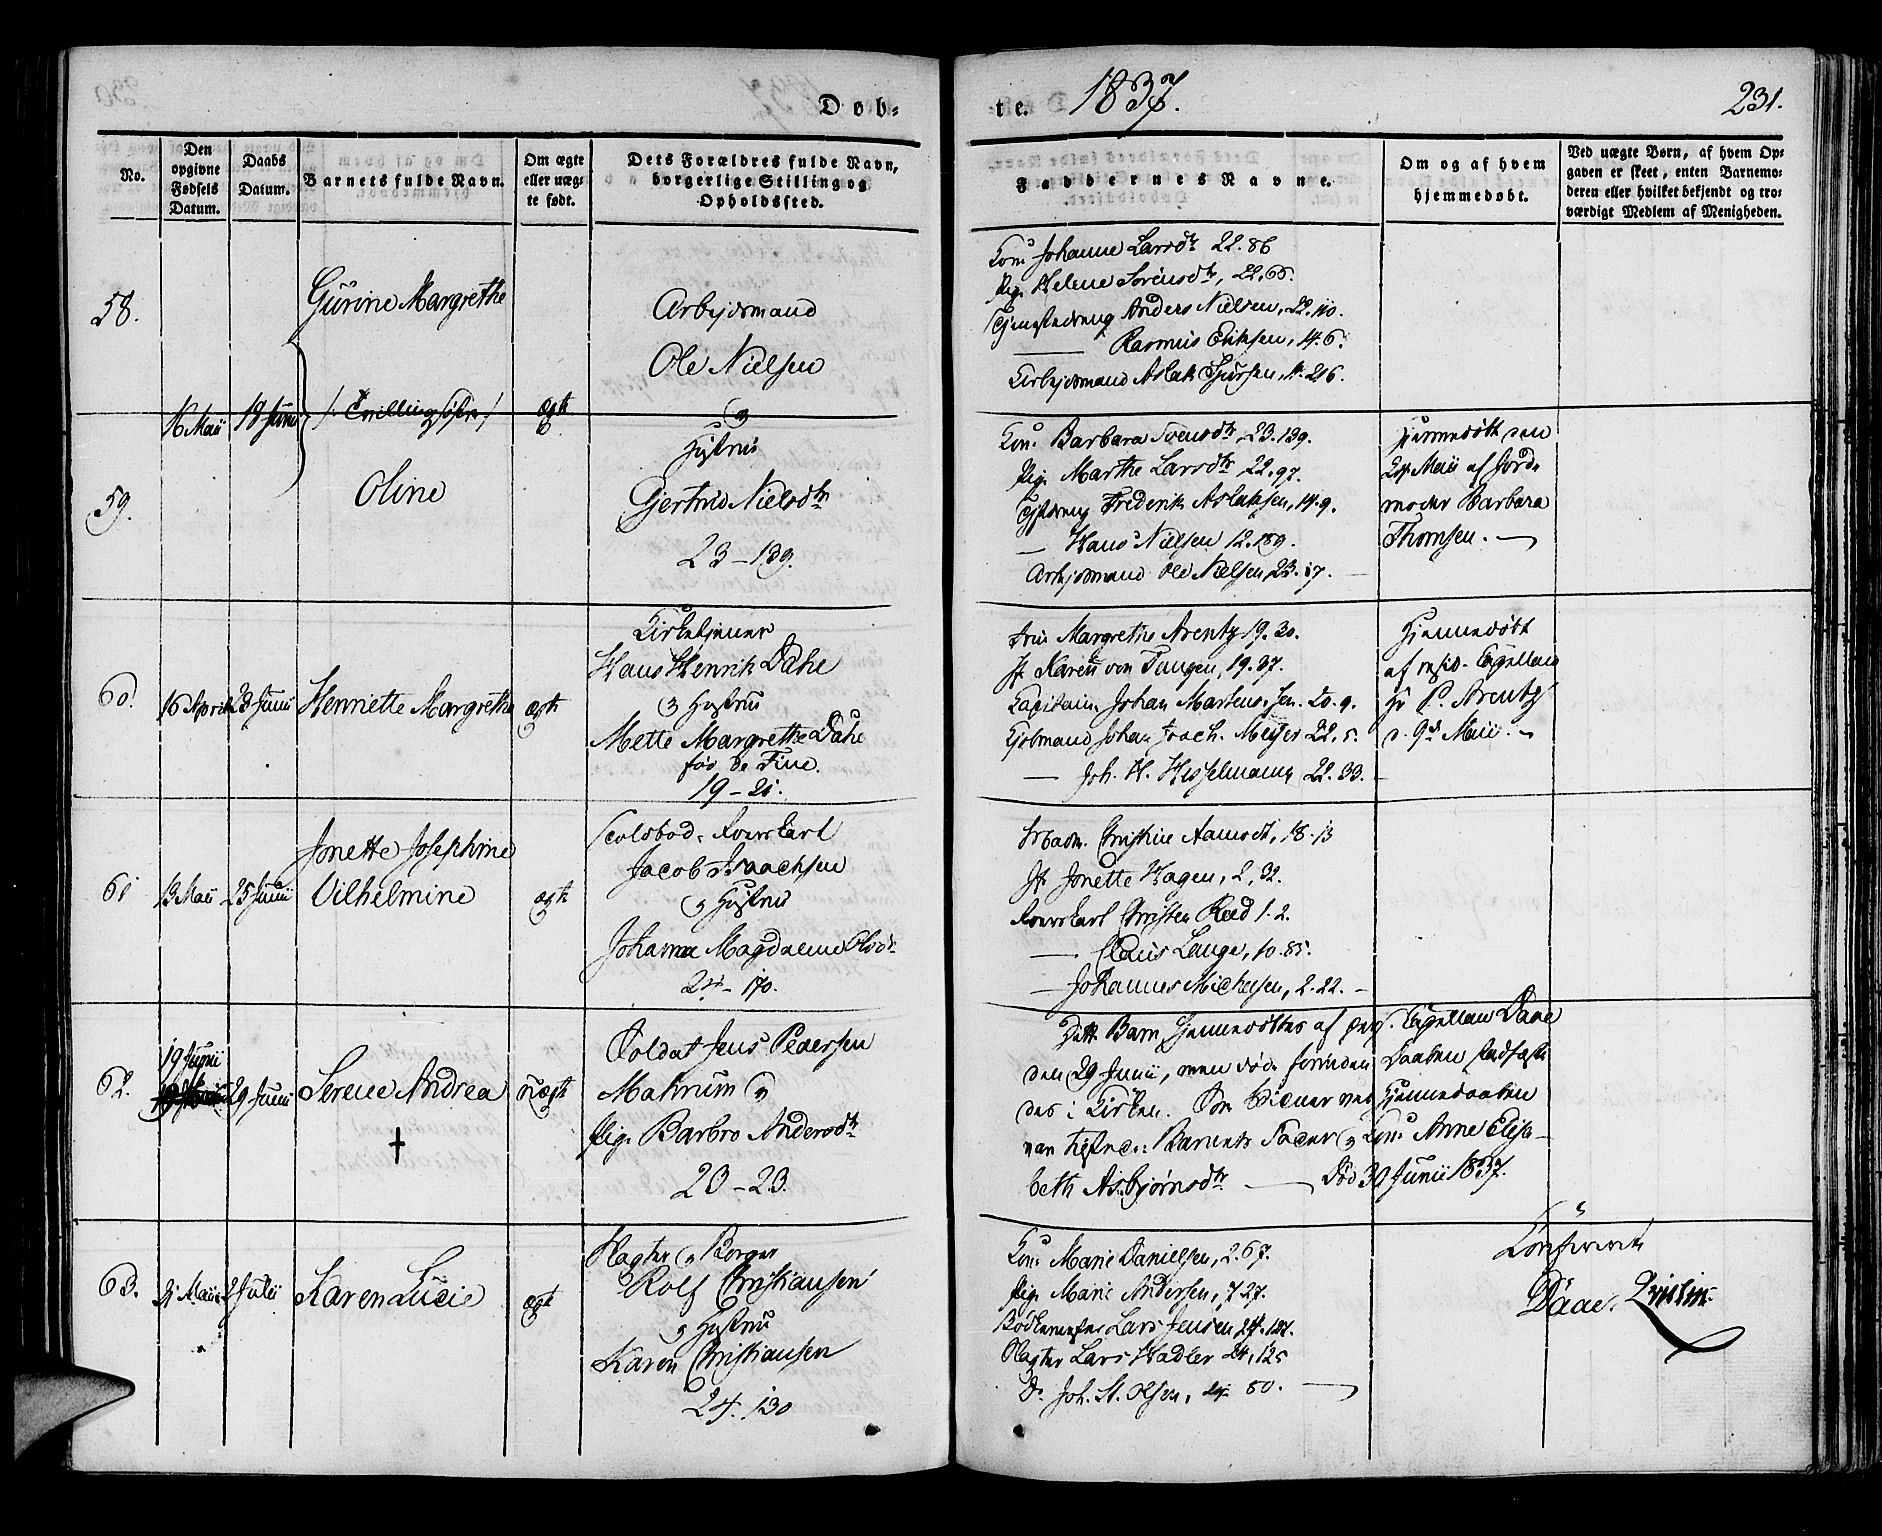 Døb-
te. 1837.
231.
No.
Den opgivne Fødsels Datum.
Daabs Datum.
Barnets fulde Navn.
Om ægte eller uægte født.
Dets Forældres fulde Navn, borgerlige Stilling og Opholdssted.
Faddernes Navne.
Om og af hvem hjemmedøbt.
Ved uægte Børn, af hvem Opgaven er skeet, enten Barnemoderen eller hvilket bekjendt og troværdigt Medlem af Menigheden.
58.
Gurine Margrethe
Arbejdsmand
Ole Nielsen
Kone Johanne Larsdtr 22.86
Pige Helene Sørensdtr, 22.65.
Tjenestedreng Anders Nielsen, 22.110.
Rasmus Eriksen, 14.6.
Arbejdsmand Aslak Sjursen, 14.216.
16 Maii
18 Junii
/: Tvillingsøstre :/
ægte
og
Hustrue
59.
Oline
Gjertrud Nielsdtr
23-139.
Kone Barbara Svensdtr, 23.139.
Pige Marthe Larsdtr 22.97.
Frederik Aslaksen, 14.9.
— Hans Nielsen 12.189.
Arbejdsmand Ole Nielsen 23.17.
Hjemmedøbt den
Maii af Jorde
moder Barbara
Thomsen. —
60.
16 April
28 Junii
Henriette Margrethe
ægte
Kirketjener
Hans Henrik Dahe
og Hustrue
Mette Margrethe Dahe
fød de Fine.
19-21.
Frue Margrethe Arentz 19.30.
Jf. Karen von Tangen, 19.37.
Capitain Johan Martens. sen. 20.9.
Kjøbmand Johan Joach. Meyer 22.5.
— Joh. H. Hesselmann 22.33.
Hjemmedøbt
af resid. Capellan
Hr P. Arentz
d. 9de Maii.
61
13 Maii
25 Junii
Jonette Josephine
Vilhelmine
ægte
Jacob Isaachsen
og Hustrue
Johanna Magdalene Olsdtr
24-170.
Madm. Christine Aamodt, 18.13
Jf. Jonette Hagen, 2,32.
Christen Rød 1.2.
— Claus Lange, 10.85.
— Johannes Michelsen, 2.22. —
62.
19 Junii
29 Junii
Serene Andrea
†
uægte
Soldat Jens Pedersen
Mahrum og
Pige Barbro Andersdtr
23-23.
Dette Barn hjemmedøbtes af pers. Capellan Daae
den 29 Junii, men døde forinden Daaben stadfæste-
des i Kirken. Som Vidner ved Hjemmedaaben
var tilstede: Barnets Fader og Kone Anne Elisa-
beth Asbjørnsdtr — Død 30 Junii 1837.
63.
21 Maii
2 Julii
Karen Lucie
ægte
Slagter og Borger
Rolf Christiansen
og Hustrue
Karen Christiansen
24.130
Kone Marie Danielsen, 2.67.
Pige Marie Andersen, 7.27.
Bødkermester Lars Jensen 24.121.
Slagter Lars Hadler 24,125
Do Joh. St. Olsen, 24. 80. —
Confereret
Daae.